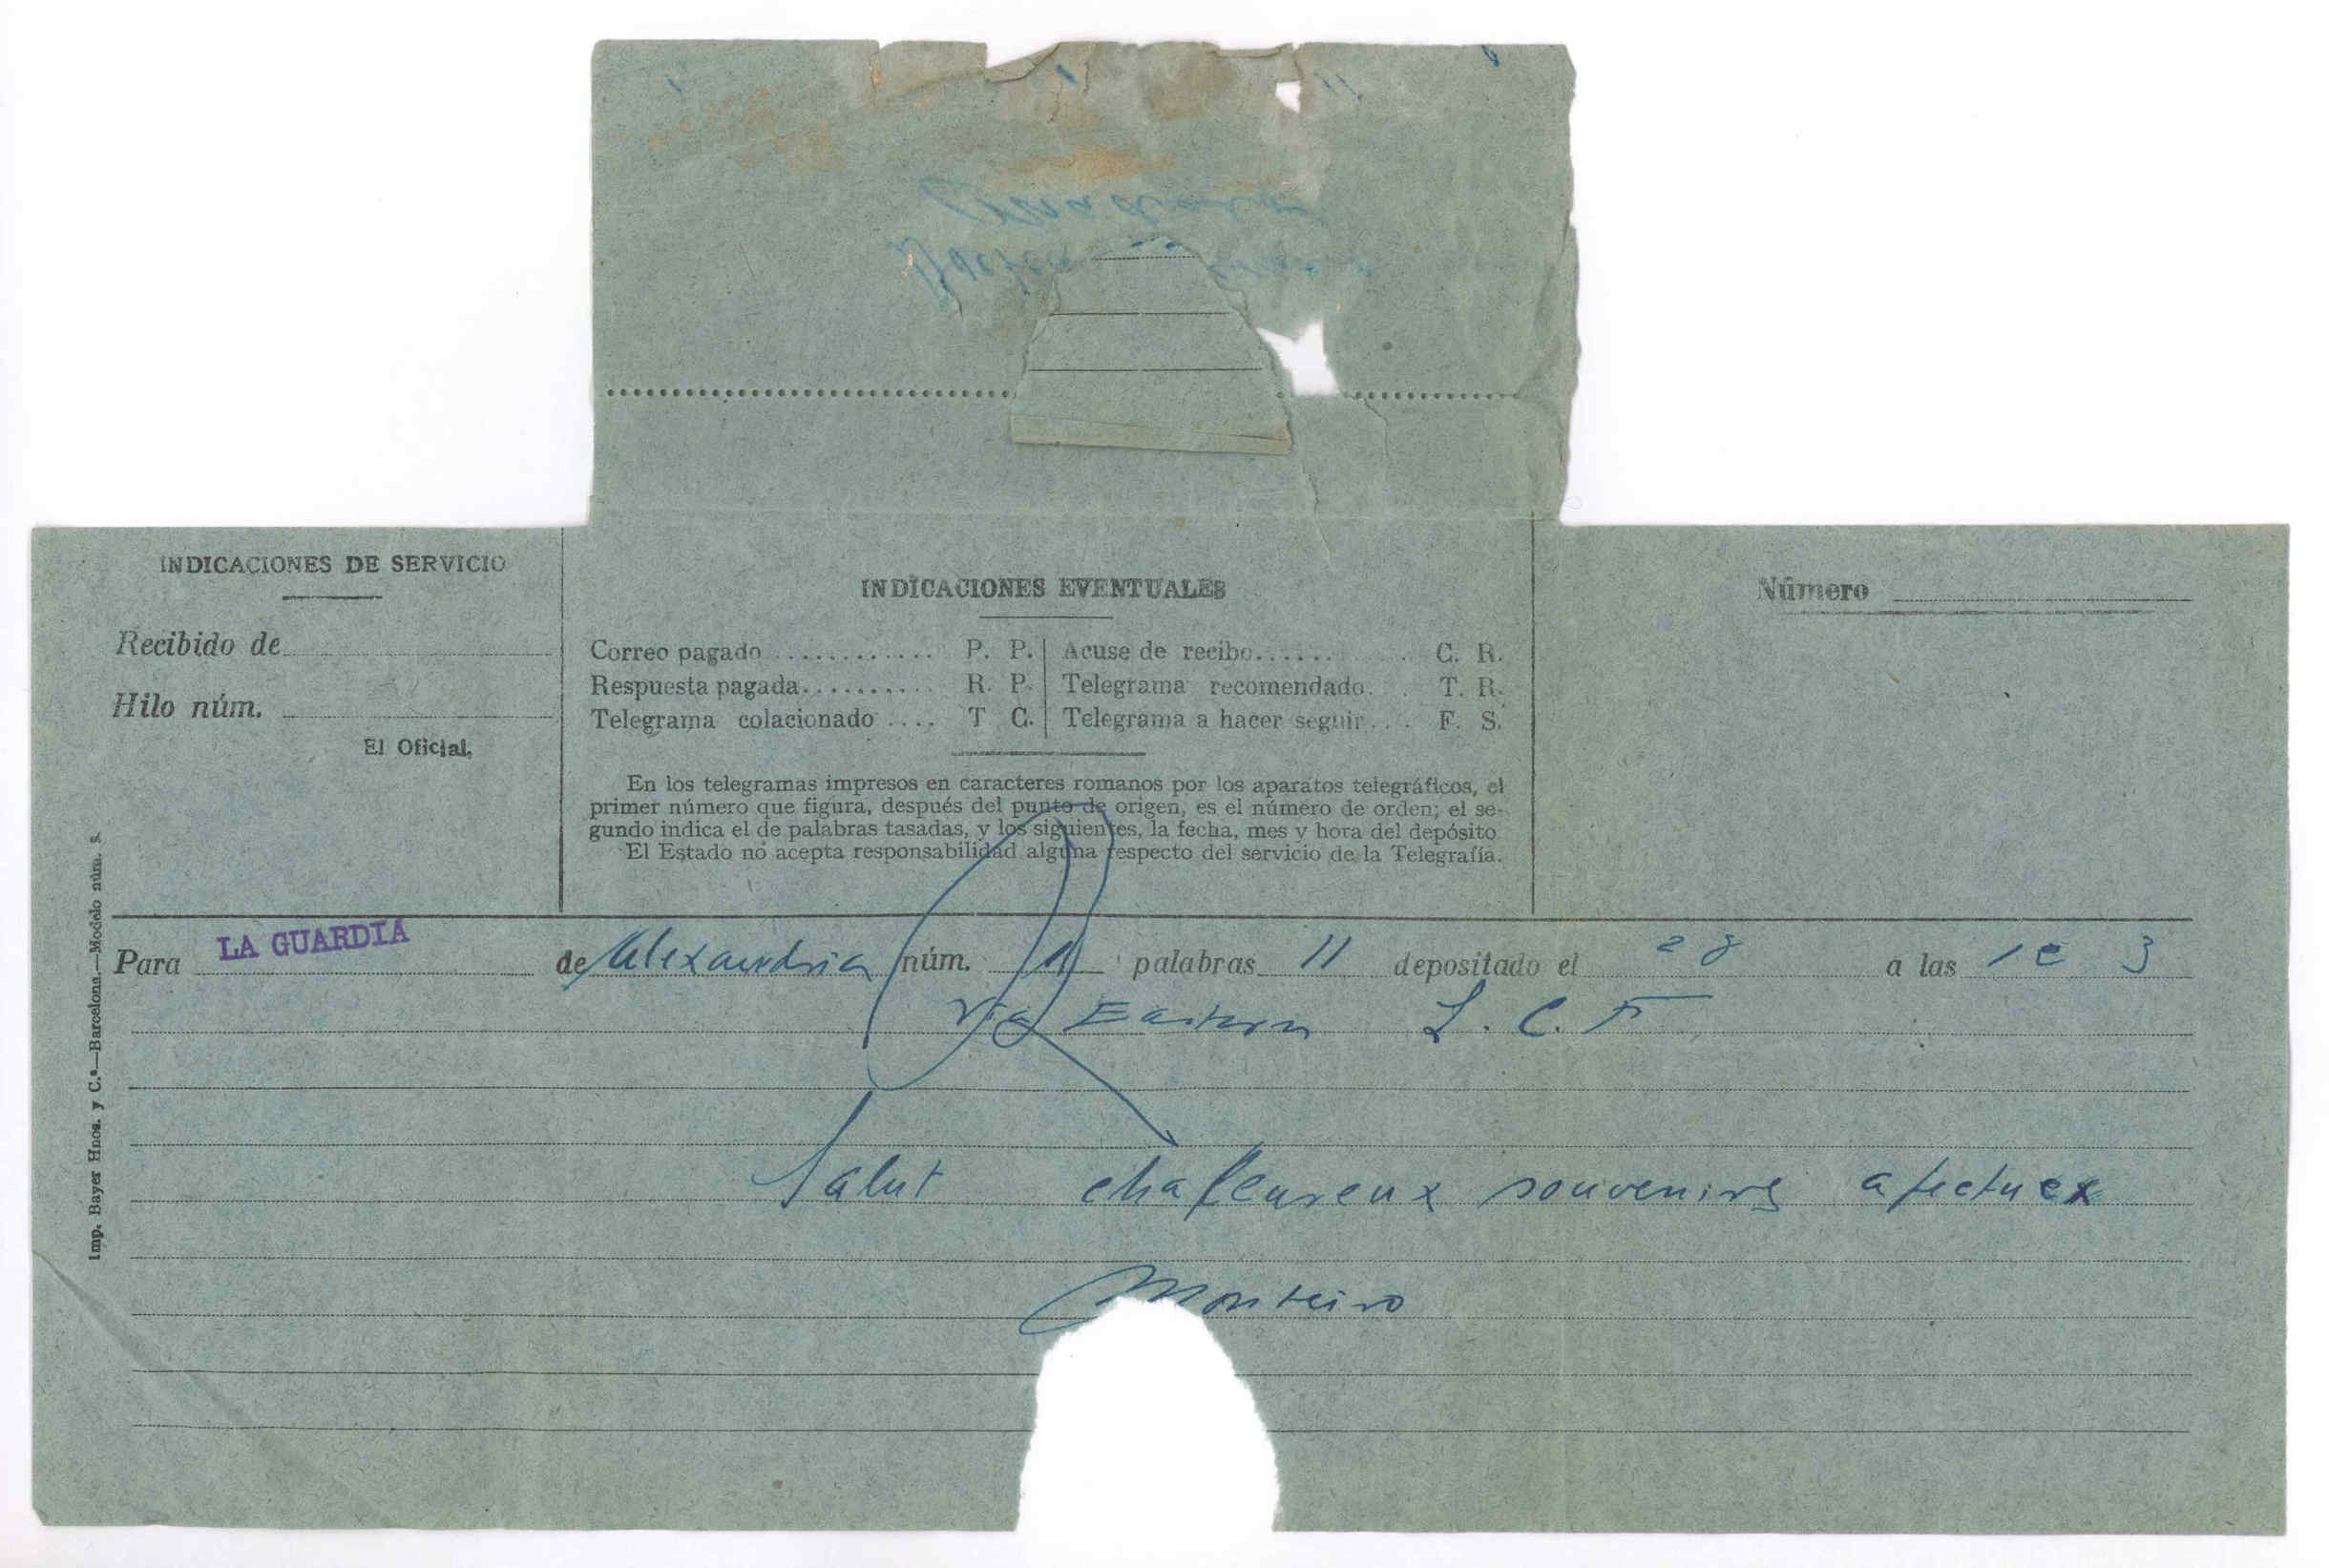 INDICACIONES DE SERVICIO
Recibido de
Hilo núm.
El Oficial,
INDICACIONES EVENTUALES
Correo pagado ............ P. P. Acuse de recibo............ C. R.
Respuesta pagada.......... R. P. Telegrama recomendado... T. R.
Telegrama colacionado .... T C. Telegrama a hacer seguir... F. S.
En los telegramas impresos en caracteres romanos por los aparatos telegráficos, el
primer número que figura, después del punto de origen, es el número de orden; el se-
gundo indica el de palabras tasadas, y los siguientes, la fecha, mes y hora del depósito
El Estado no acepta responsabilidad alguna respecto del servicio de la Telegrafía.
Número
Imp. Bayer Hnos. y C.ª—Barcelona.—Modelo núm. S.
Para LA GUARDIA de Alexandria núm. palabras 11 depositado el 28 a las
Via Eastern L. C. F
Salut chaleureux souvenirs afectuex
Monteiro